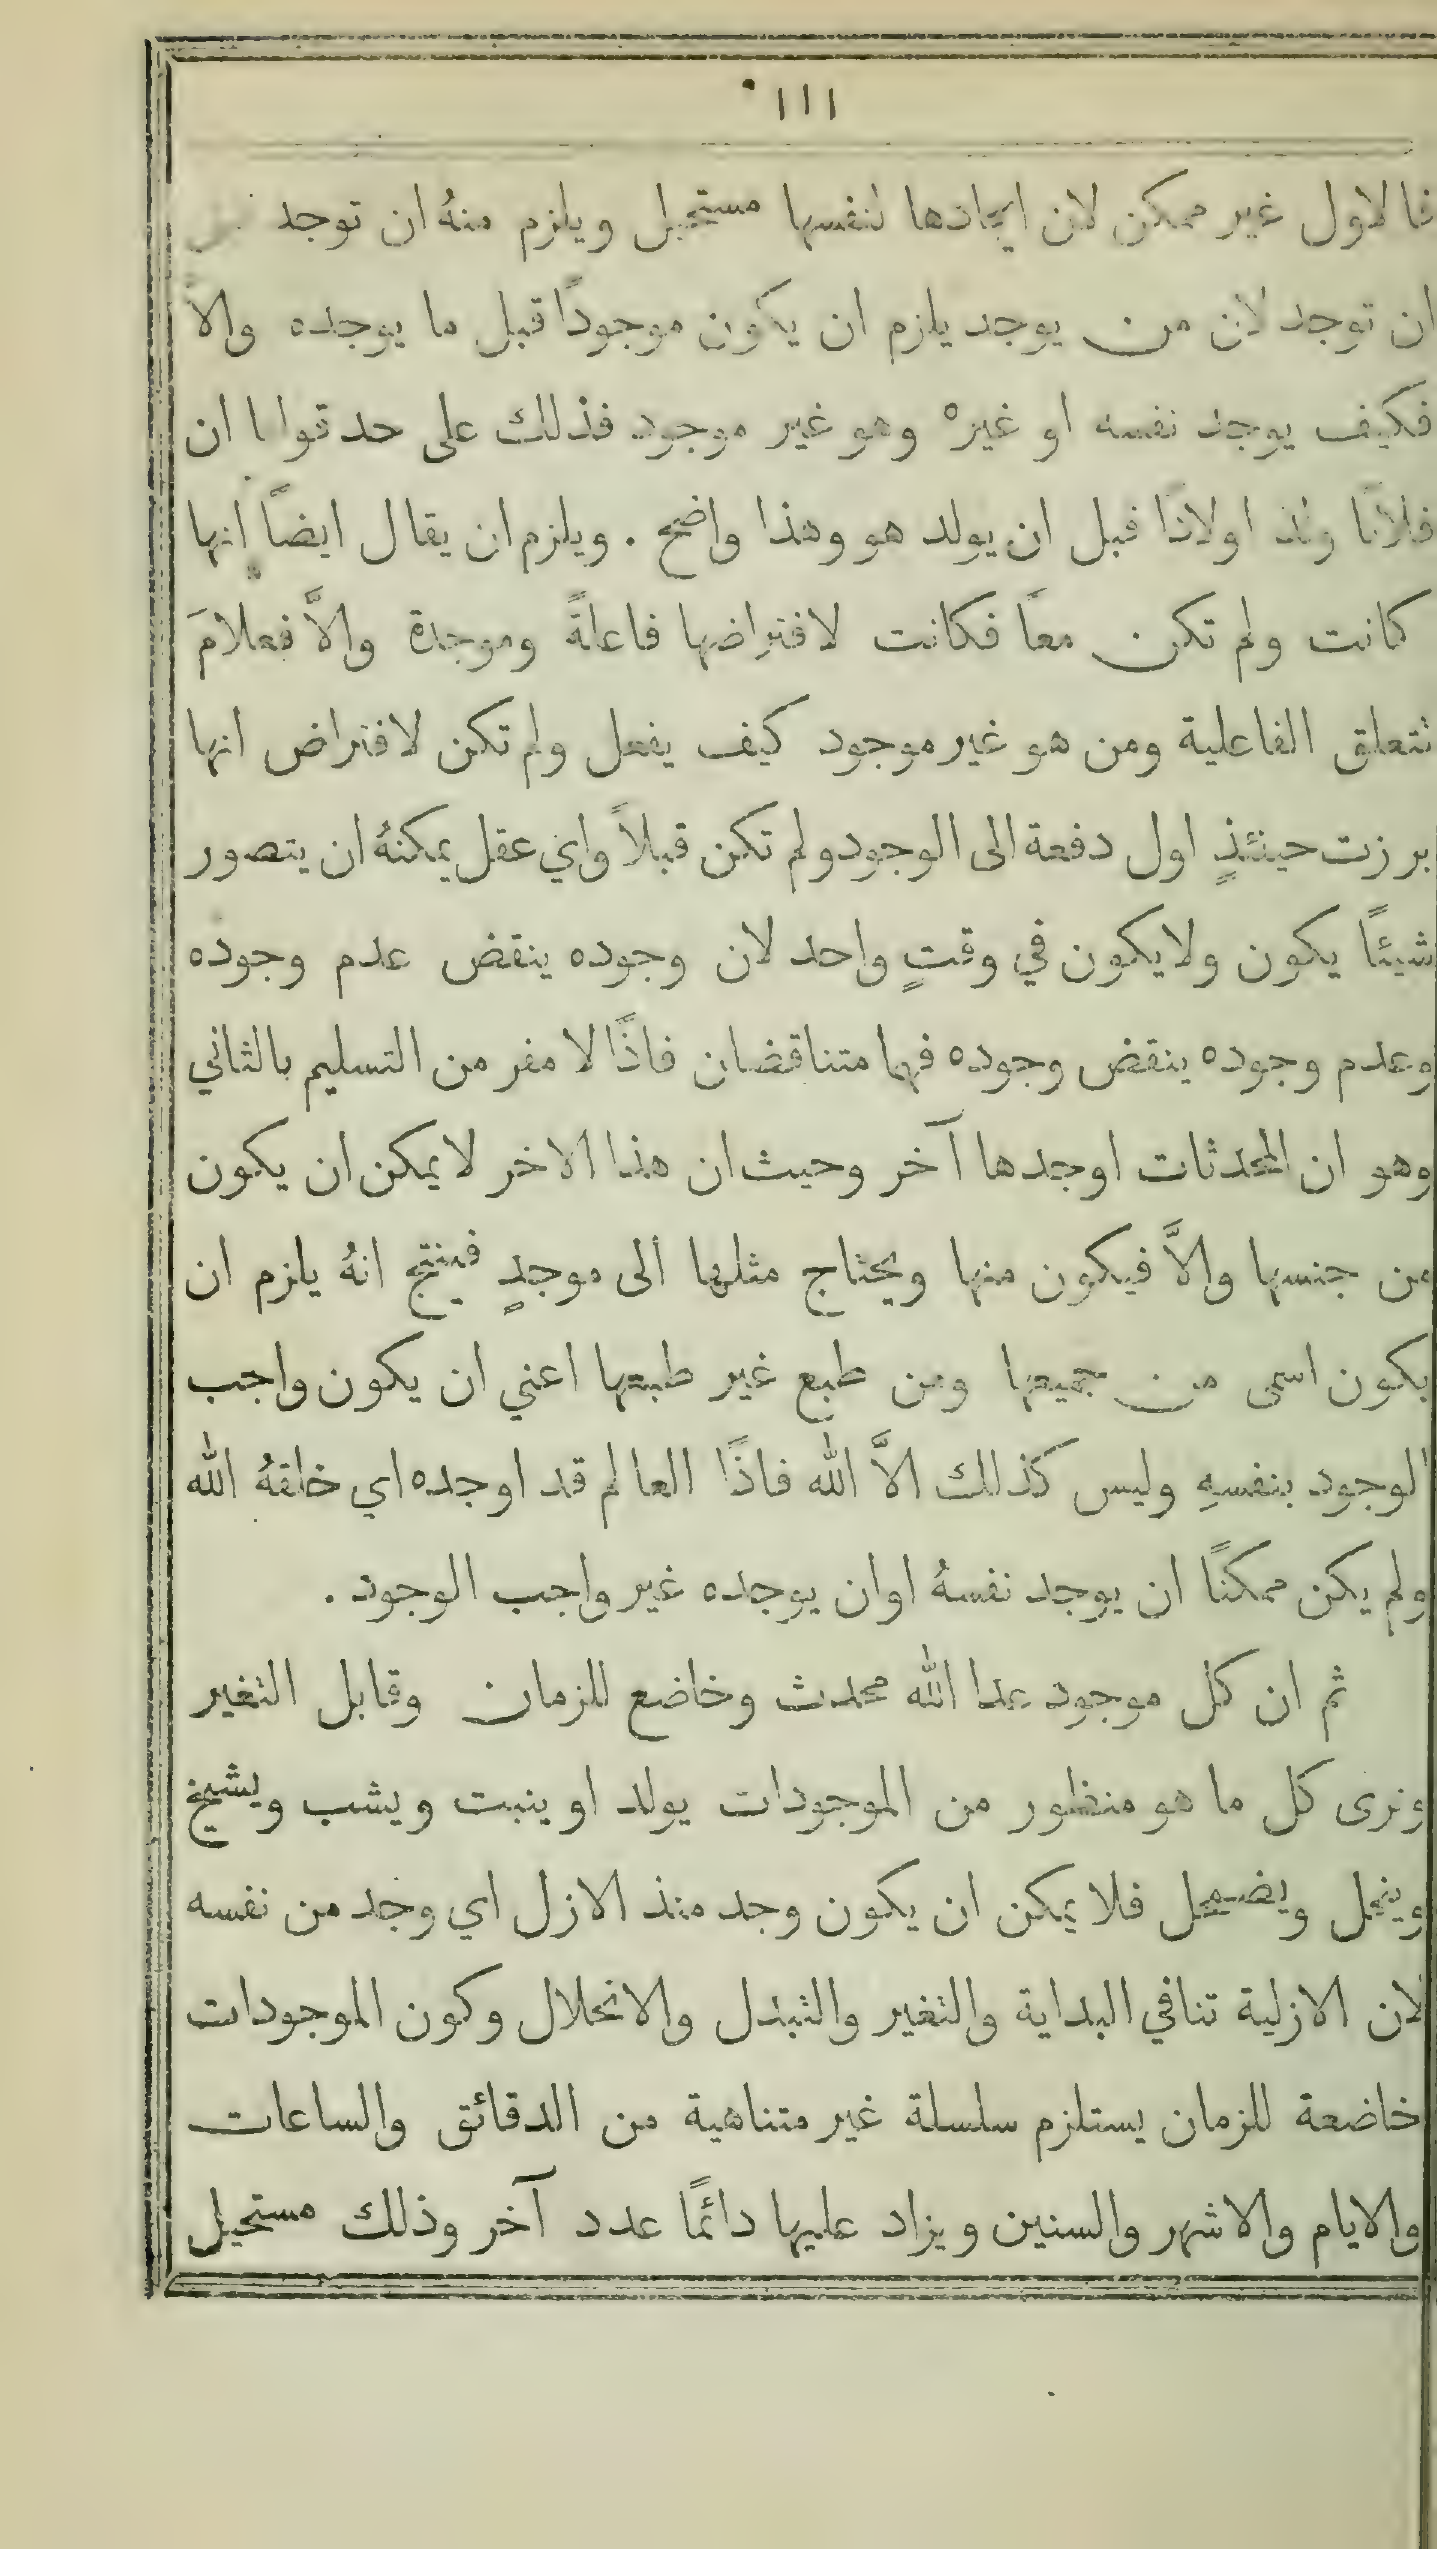 ١١١
فالاول غير ممكن لان ايجادها لنفسها مستحيل ويلزم منهُ ان توجد
ان توجد لان من يوجد يلزم ان يكون موجودًا قبل ما يوجده والاَّ
فكيف يوجد نفسه او غيره وهو غير موجود فذلك على حد قولنا ان
فلانًا ولد اولادًا قبل ان يولد هو وهذا واضح . ويلزم ان يقال ايضاً انها
كانت ولم تكن معاً فكانت لافتراضها فاعلةً وموجدة والاَّ فعلامَ
نتعلق الفاعلية ومن هو غير موجود كيف يفعل ولم تكن لافتراض انها
برزت حينئذٍ اول دفعة الى الوجود ولم تكن قبلاً واي عقل يمكنهُ ان يتصور
شيئاً يكون ولا يكون في وقتٍ واحد لان وجوده ينقض عدم وجوده
وعدم وجوده ينقض وجوده فهما متناقضان فاذًا لا مفر من التسليم بالثاني
وهو ان المحدثات اوجدها آخر وحيث ان هذا الاخر لا يمكن ان يكون
من جنسها والاَّ فيكون منها ويحتاج مثلها الى موجدٍ فينتج انهُ يلزم ان
يكون اسمى من جميعها ومن طبع غير طبعها اعني ان يكون واجب
الوجود بنفسهِ وليس كذلك الاَّ الله فاذًا العالم قد اوجده اي خلقهُ الله
ولم يكن ممكنًا ان يوجد نفسهُ او ان يوجده غير واجب الوجود .
ثم ان كل موجود عدا الله محدث وخاضع للزمان وقابل التغير
ونرى كل ما هو منظور من الموجودات يولد او ينبت ويشب ويشيخ
وينحل ويضمحل فلا يمكن ان يكون وجد منذ الازل اي وجد من نفسه
لان الازلية تنافي البداية والتغير والتبدل والانحلال وكون الموجودات
خاضعة للزمان يستلزم سلسلة غير متناهية من الدقائق والساعات
والايام والاشهر والسنين ويزاد عليها دائمًا عدد آخر وذلك مستحيل